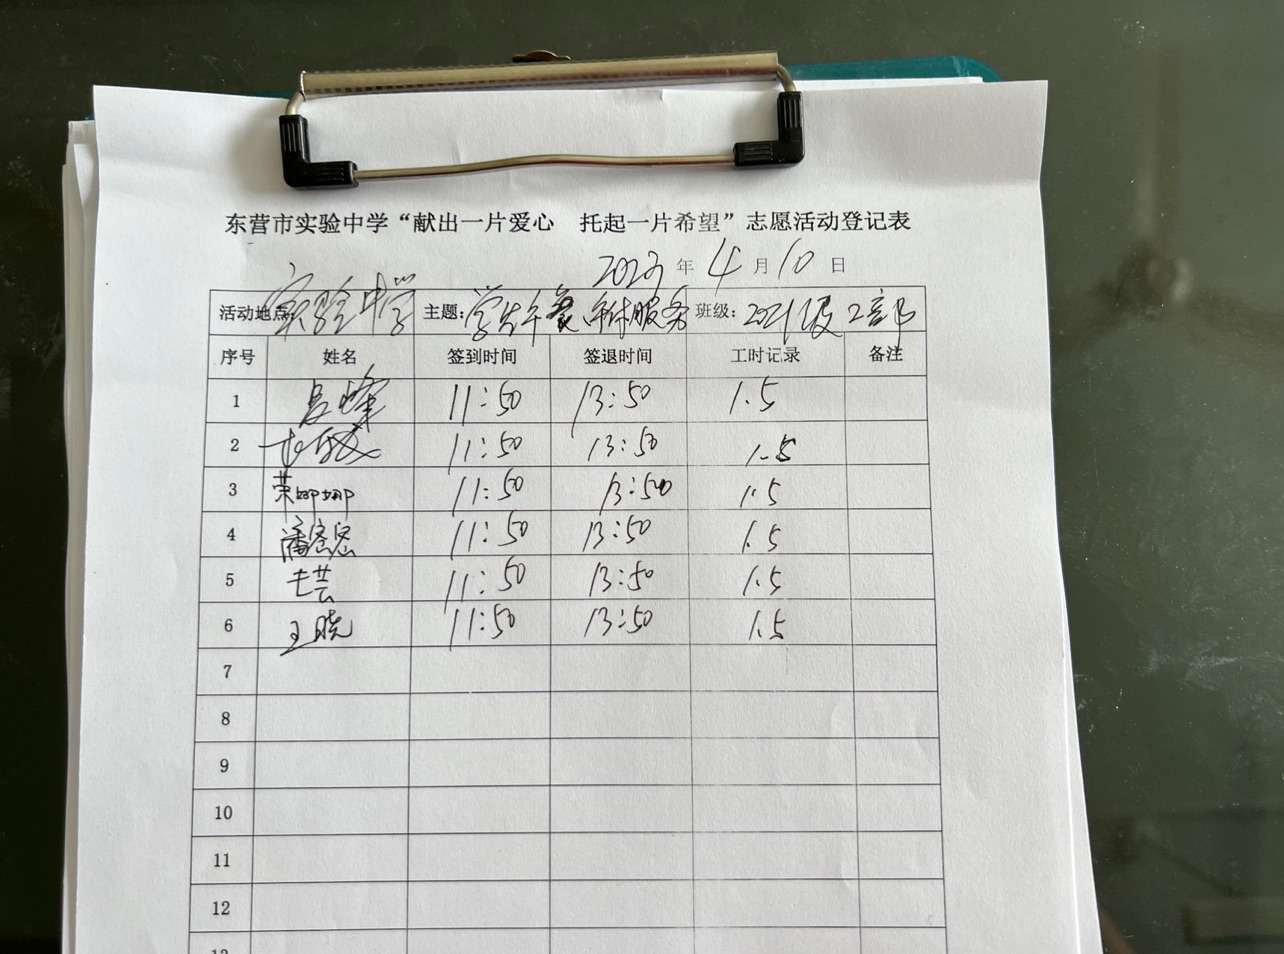 东营市实验中学“献出一片爱心 托起一片希望”志愿活动登记表
2023年4月10日
活动地点 实验中学 主题：学生午餐 服务 班级：2021级2部
序号 姓名 签到时间 签退时间 工时记录 备注
1 峰 11:50 13:50 1.5
2 11:50 13:50 1.5
3 荣娜娜 11:50 13:50 1.5
4 潘 11:50 13:50 1.5
5 芸 11:50 13:50 1.5
6 王晓 11:50 13:50 1.5
7
8
9
10
11
12